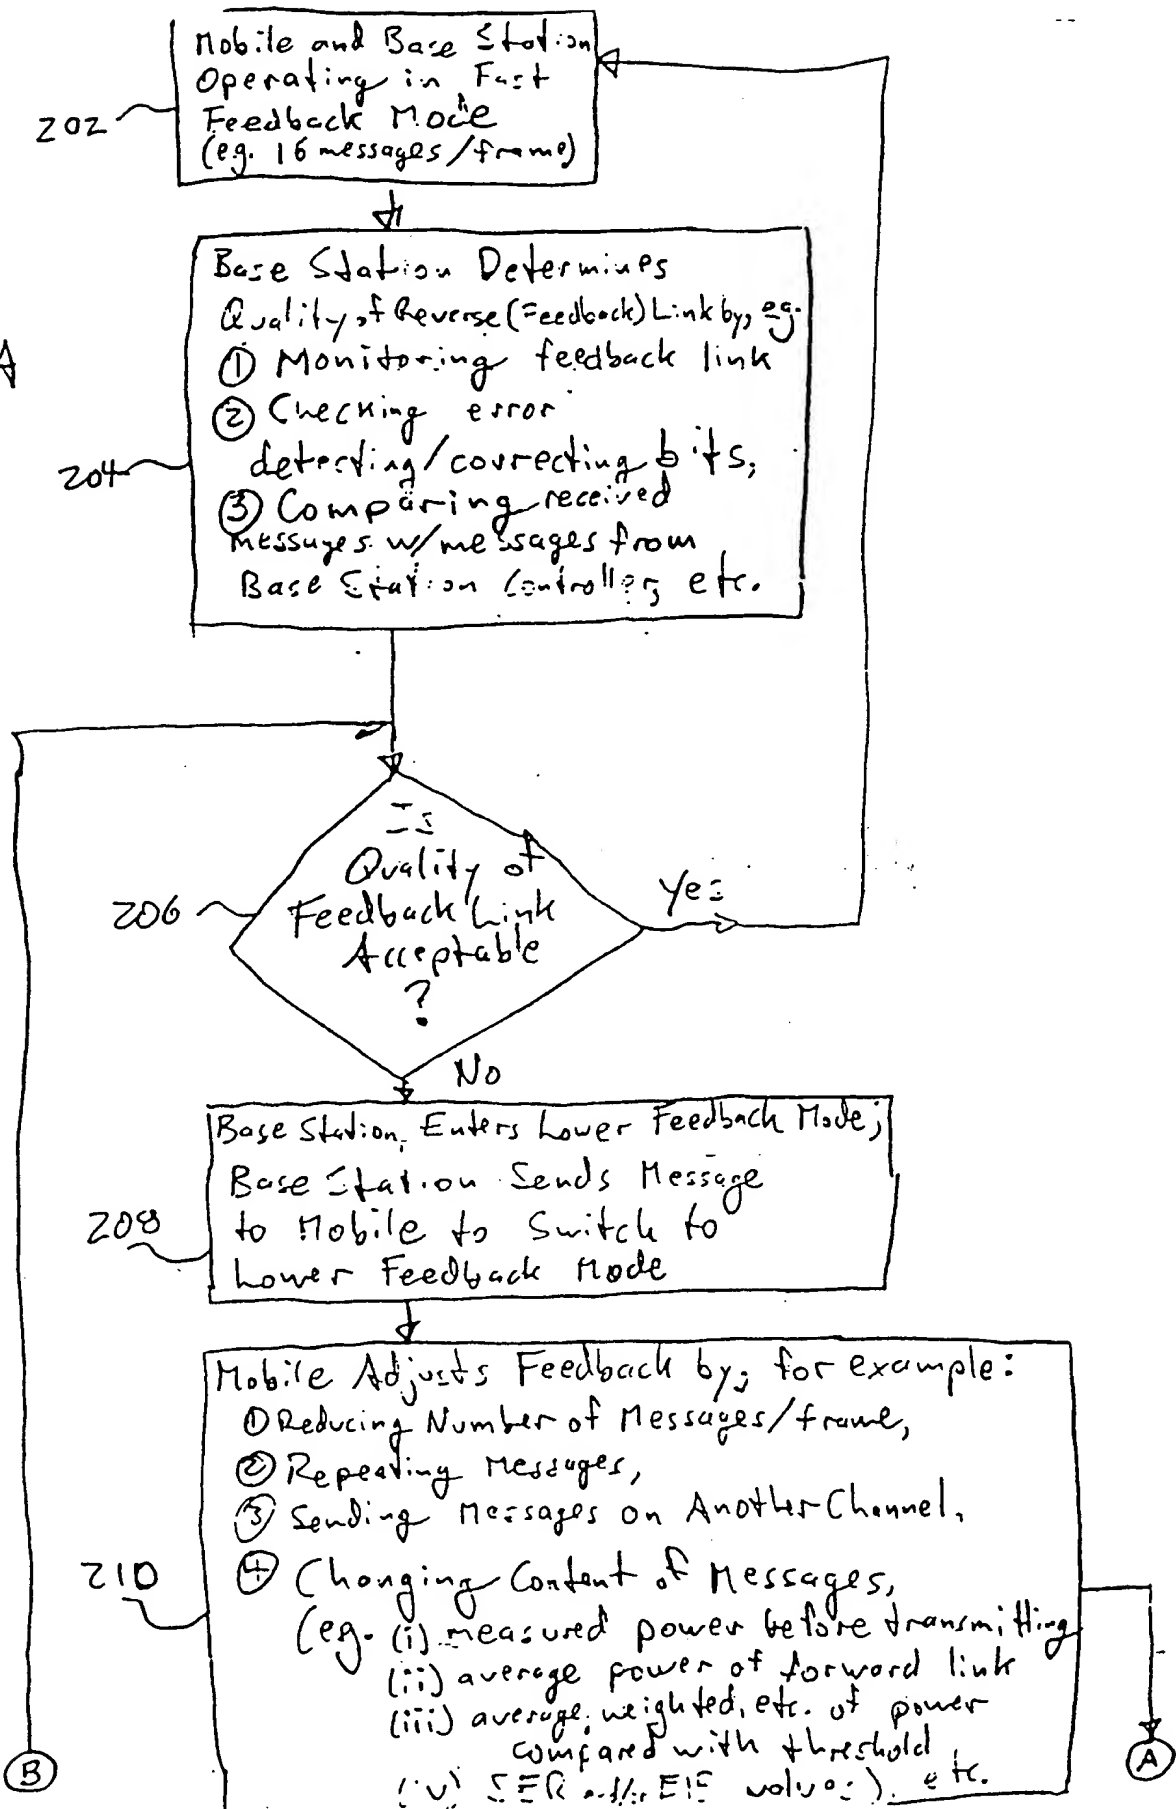 Mobile and Base Station
Operating in Fast
Feedback Mode
(e.g. 16 messages/frame)
202
Base Station Determines
Quality of Reverse (Feedback) Link by, eg.
① Monitoring feedback link
② Checking error
detecting/correcting bits,
③ Comparing received
messages w/messages from
Base Station Controller, etc.
204
Is
Quality of
Feedback Link
Acceptable
?
206
Yes
No
Base Station Enters Lower Feedback Mode;
Base Station Sends Message
to Mobile to Switch to
Lower Feedback Mode
208
Mobile Adjusts Feedback by, for example:
① Reducing Number of Messages/frame,
② Repeating Messages,
③ Sending Messages on Another Channel,
④ Changing Content of Messages,
(eg. (i) measured power before transmitting
(ii) average power of forward link
(iii) average, weighted, etc. of power
compared with threshold
values), etc.
210
B
A